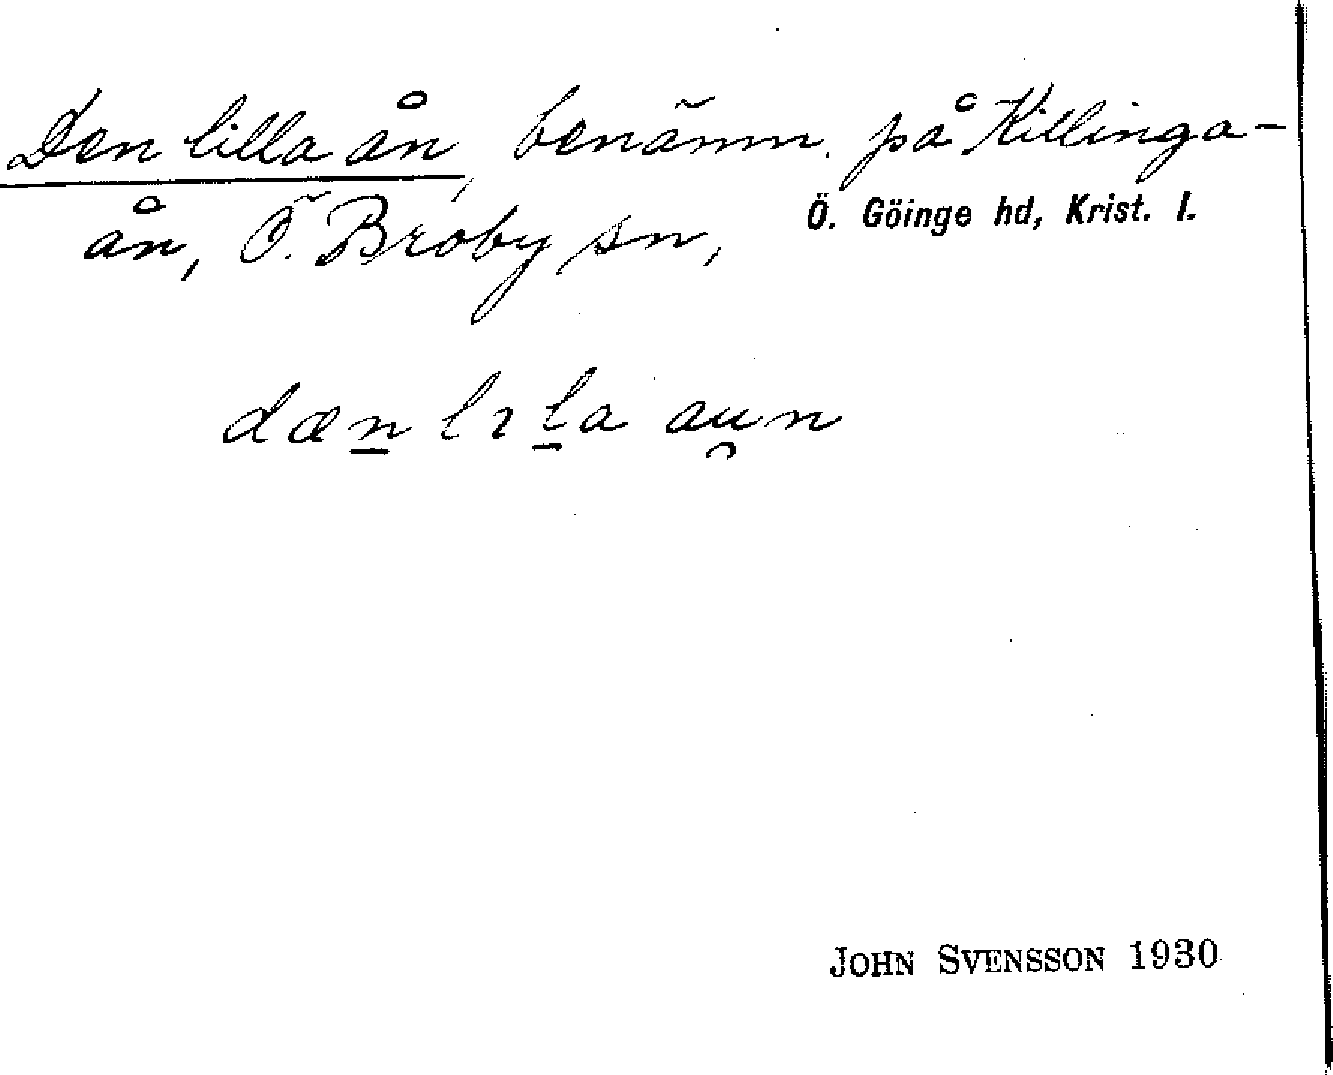 Den lilla ån, benämn. på Killinga-
ån, Ö. Broby sn, Ö. Göinge hd, Krist. l.
dæn̲ lɪl̲a au̯n
JOHN SVENSSON 1930